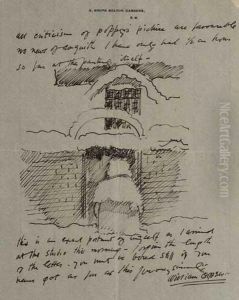 8, SOUTH BOLTON GARDENS,
S.W.
all criticism of poppy's picture are favourable
no news of Asquith I have only had ½ an hour
so far at the painting itself —
this is an exact portrait of myself as I arrived
at the studio this morning — forgive the length
of the letter — you must be bored stiff if you
have got as far as this yours
William Orpen
NiceArtGallery.com